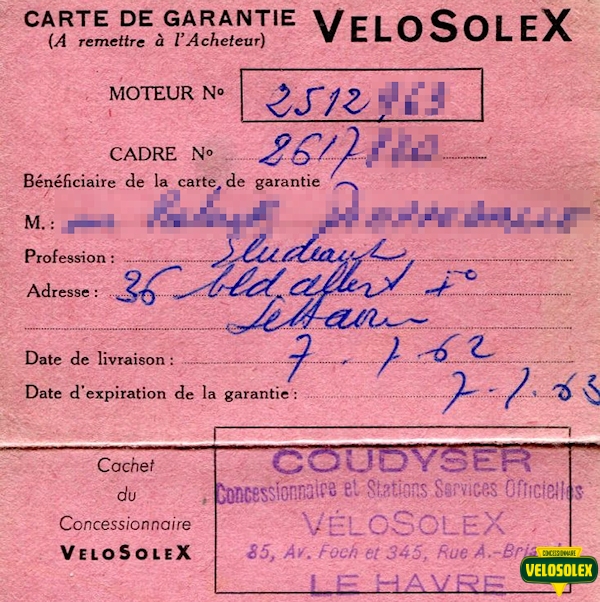 CARTE DE GARANTIE
(A remettre à l'Acheteur)
VELOSOLEX
MOTEUR Nº 2512
CADRE Nº 2617
Bénéficiaire de la carte de garantie
M. :
Profession : Etudiant
Adresse : 36 bld albert 1º
Le Havre
Date de livraison : 7.7.62
Date d'expiration de la garantie : 7.7.63
Cachet
du
Concessionnaire
VELOSOLEX
COUDYSER
Concessionnaire et Stations Services Officielles
VÉLOSOLEX
85, Av. Foch et 345, Rue A.-Bri
LE HAVRE
CONCESSIONNAIRE
VELOSOLEX